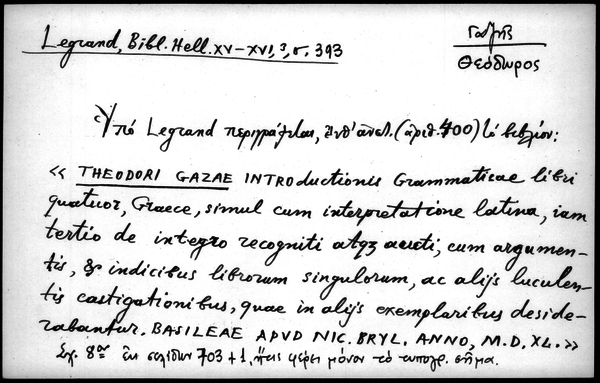 Legrand, Bibl. Hell. XV-XVI, 3, σ. 393
Γαζῆς
Θεόδωρος
Ὑπό Legrand περιγράφεται, (ἀριθ. 400) τό βιβλίον:
« THEODORI GAZAE INTROductionis Grammaticae libri
quatuor, Graece, simul cum interpretatione latina, iam
tertio de integro recogniti atqz aucti, cum argumen-
tis, & indicibus librorum singulorum, ac alijs luculen-
tis castigationibus, quae in alijs exemplaribus deside-
rabantur. BASILEAE APVD NIC. BRYL. ANNO, M.D.XL. »
Σχ. 8ον ἐκ σελίδων 703 + 1, ἥτις φέρει μόνον τό τυπογρ. σῆμα.